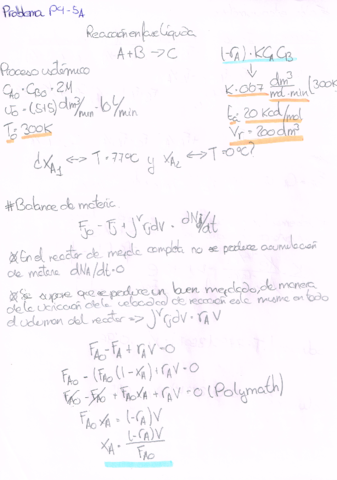 Problema P4-5A
Reacción en fase líquida
A+B → C
(-rA) = K CA CB
Proceso isotérmico
CA0 = CB0 = 2M
K = 0.07 dm³/mol·min (300K)
υ0 = (5+5) dm³/min = 10 L/min
Ea = 20 Kcal/mol
T0 = 300K
Vr = 200 dm³
¿XA1 ↔ T = 77ºC y XA2 ↔ T = 0ºC?
# Balance de materia:
Fj0 - Fj + ∫^V rj dV = dNj/dt
En el reactor de mezcla completa no se produce acumulación
de materia dNA/dt = 0
Se supone que se produce un buen mezclado, de manera
que la variación de la velocidad de reacción es la misma en todo
el volumen del reactor => ∫^V rj dV = rA V
FA0 - FA + rA V = 0
FA0 - (FA0 (1 - XA)) + rA V = 0
FA0 - FA0 + FA0 XA + rA V = 0 (Polymath)
FA0 XA = (-rA) V
XA = (-rA) V / FA0